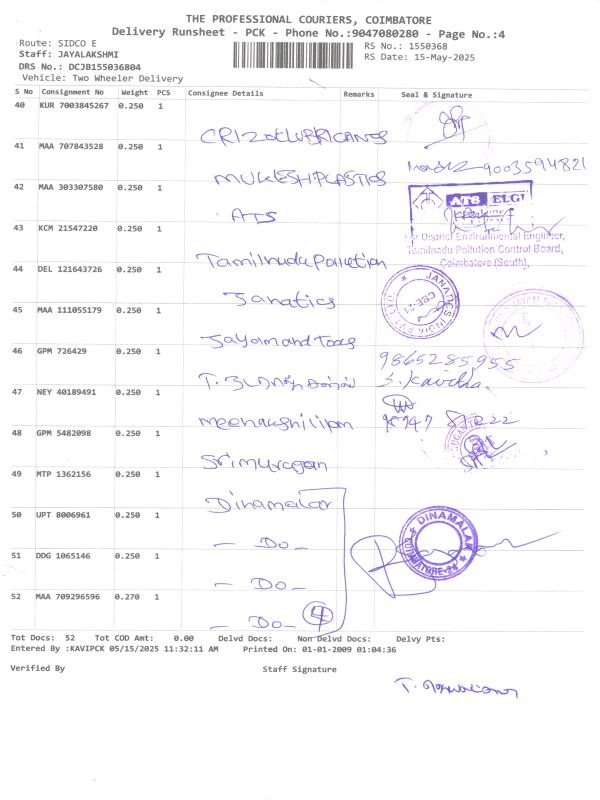 THE PROFESSIONAL COURIERS, COIMBATORE
Delivery Runsheet - PCK - Phone No.:9047080280 - Page No.:4
Route: SIDCO E
Staff: JAYALAKSHMI
DRS No.: DCJB155036804
Vehicle: Two Wheeler Delivery
RS No.: 1550368
RS Date: 15-May-2025
S No Consignment No Weight PCS Consignee Details Remarks Seal & Signature
40 KUR 7003845267 0.250 1
CRIZOLUBRICANTS
41 MAA 707843528 0.250 1
MUKESHPLASTICS 9003594821
42 MAA 303307580 0.250 1
ATS
ATS ELGI
43 KCM 21547220 0.250 1
For District Environmental Engineer,
Tamilnadu Pollution Control Board,
Coimbatore (South),
Tamilnadu Pollution
44 DEL 121643726 0.250 1
Janatics
JANATICS INDIA PVT LTD
CBE-21
45 MAA 111055179 0.250 1
Jayamand Tools
46 GPM 726429 0.250 1
9865285955
S. Kavitha
47 NEY 40189491 0.250 1
meenakshi ilpm
48 GPM 5482098 0.250 1
Srimurugan
49 MTP 1362156 0.250 1
Dinamalar
50 UPT 8006961 0.250 1
DINAMALAR
COIMBATORE-24
- Do -
51 DDG 1065146 0.250 1
- Do -
52 MAA 709296596 0.270 1
- Do - 4
Tot Docs: 52 Tot COD Amt: 0.00 Delvd Docs: Non Delvd Docs: Delvy Pts:
Entered By :KAVIPCK 05/15/2025 11:32:11 AM Printed On: 01-01-2009 01:04:36
Verified By Staff Signature